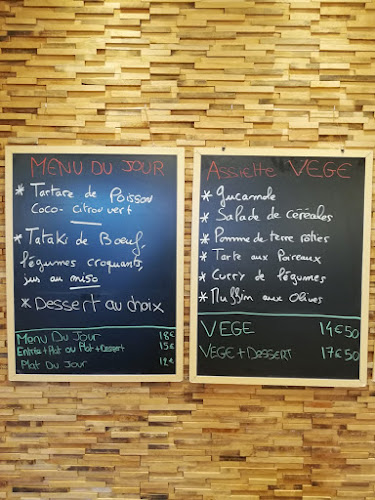 MENU DU JOUR
* Tartare de Poisson
Coco-citron vert
* Tataki de Boeuf,
légumes croquants,
jus au miso
* Dessert au choix
Menu Du Jour 18€
Entrée+Plat ou Plat+Dessert 15€
Plat Du Jour 12€
Assiette VEGE
* Gucamole
* Salade de céréales
* Pomme de terre rôties
* Tarte aux Poireaux
* Curry de légumes
* Muffin aux Olives
VEGE 14€50
VEGE + DESSERT 17€50